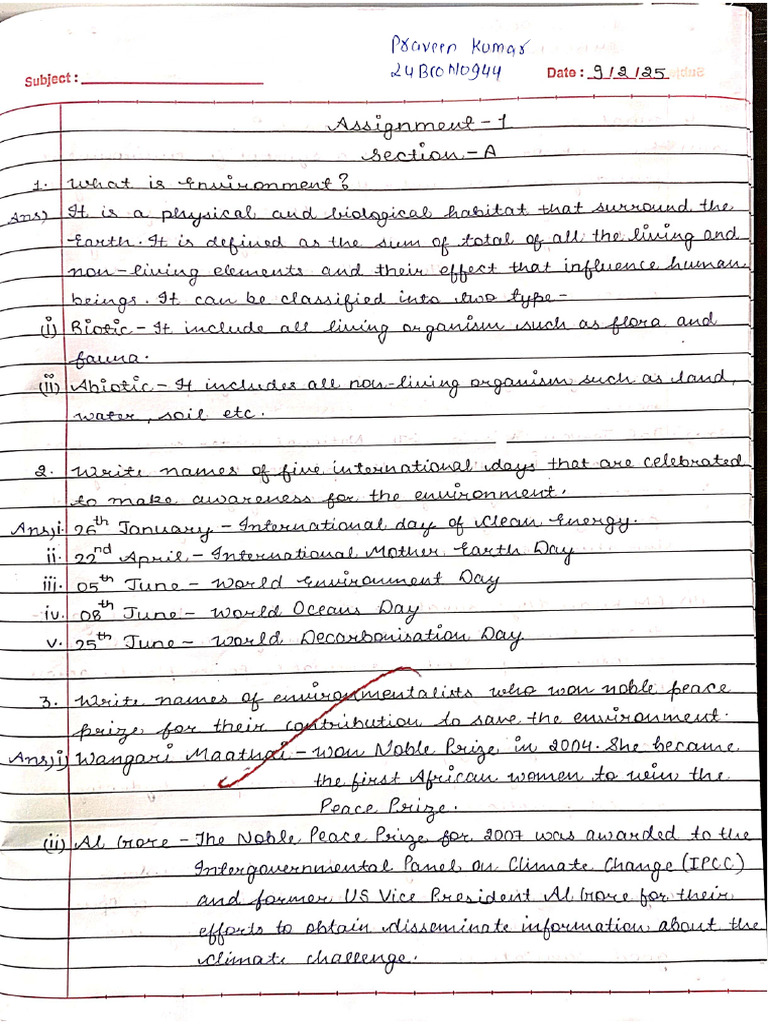 Praveen Kumar
Subject : 24BCON0944 Date : 9/2/25
Assignment-1
Section-A
1. What is Environment?
Ans) It is a physical and biological habitat that surround the
Earth. It is defined as the sum of total of all the living and
non-living elements and their effect that influence human
beings. It can be classified into two type-
(i) Biotic - It include all living organism such as flora and
fauna.
(ii) Abiotic - It includes all non-living organism such as land,
water, soil etc.
2. Write names of five international days that are celebrated
to make awareness for the environment.
Ans) i. 26th January - International day of Clean Energy.
ii. 22nd April - International Mother Earth Day
iii. 05th June - World Environment Day
iv. 08th June - World Oceans Day
v. 25th June - World Decarbonisation Day
3. Write names of environmentalists who won noble peace
prize for their contribution to save the environment.
Ans) i) Wangari Maathai - won Noble Prize in 2004. She became
the first African women to win the
Peace Prize.
(ii) Al Gore - The Noble Peace Prize for 2007 was awarded to the
Intergovernmental Panel on Climate Change (IPCC)
and former US Vice President Al Gore for their
efforts to obtain disseminate information about the
climate challenge.